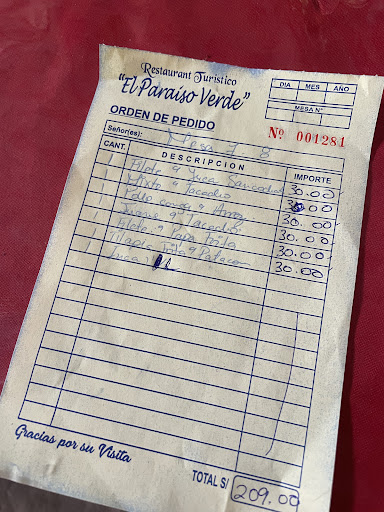 Restaurant Turístico
"El Paraíso Verde"
DIA MES AÑO
MESA Nº
ORDEN DE PEDIDO
Nº 001281
Señor(es): Mesa 7 8
CANT. DESCRIPCION IMPORTE
1 Yuca 30.00
1 Mixto Tacacho 30.00
1 Pollo Arroz 30.00
1 Tacacho 30.00
1 Papa frita 30.00
1 Frita Patacon 30.00
Gracias por su Visita
TOTAL S/ 209.00